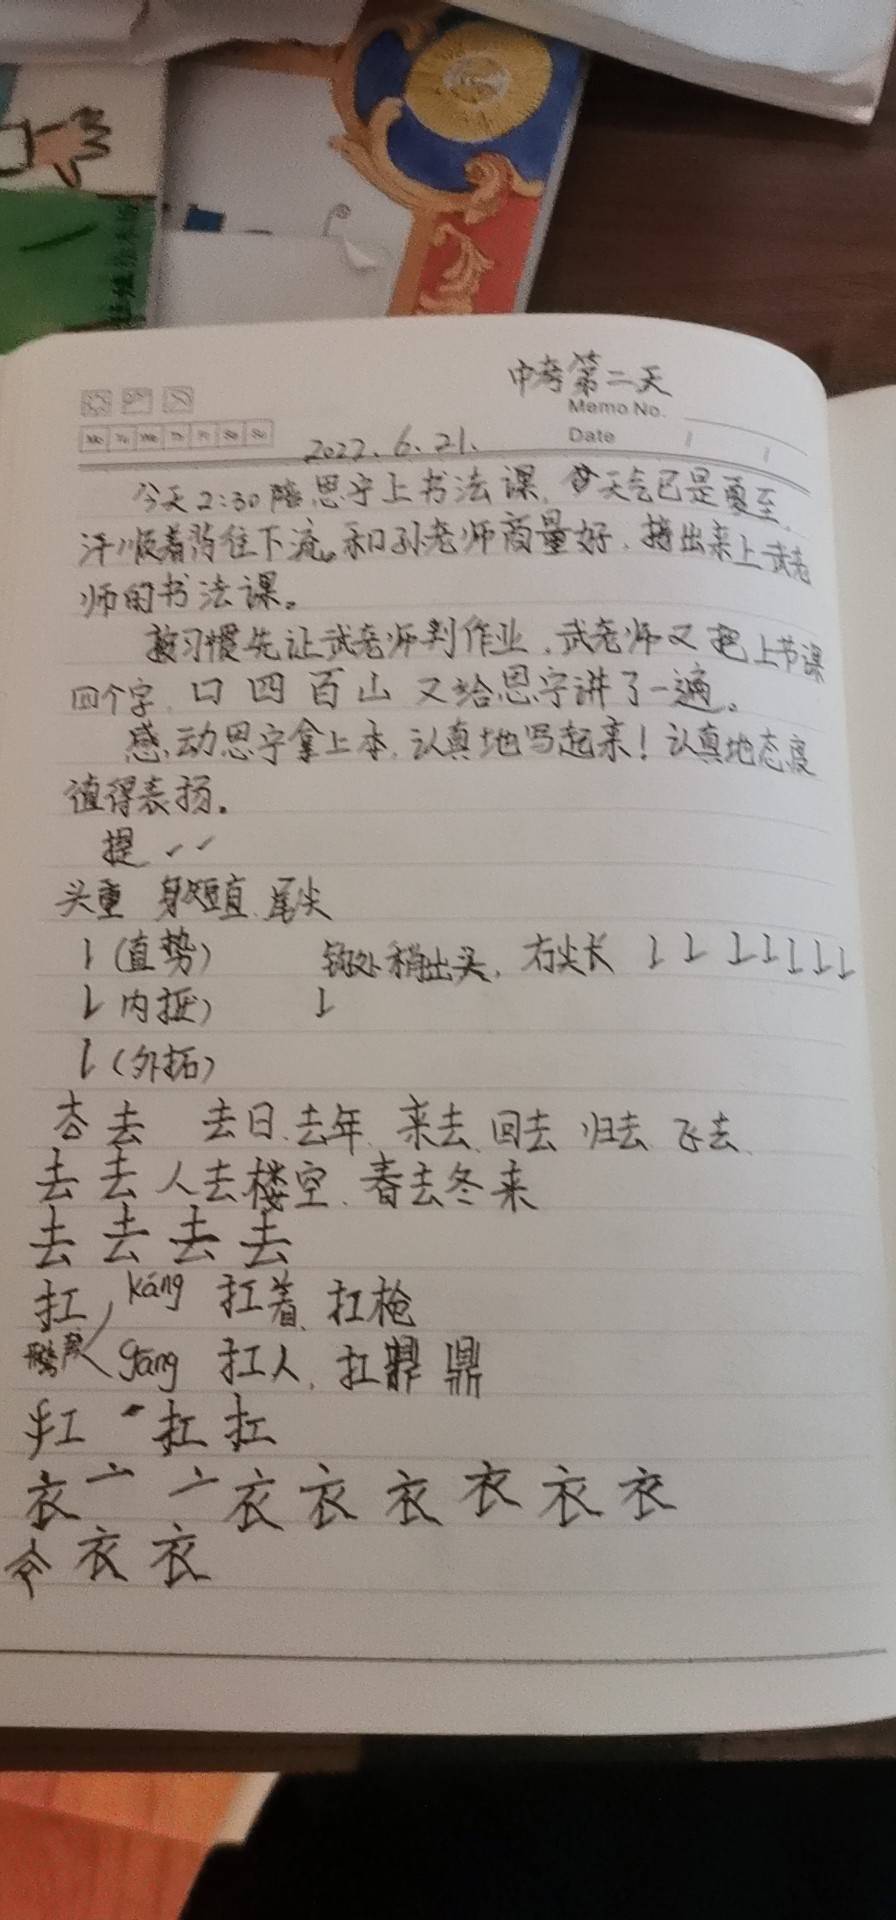 中考第二天
Memo No.
Mo Tu We Th Fr Sa Su
2022.6.21.
Date / /
今天2:30陪思宇上书法课,天气已是夏至,
汗顺着背往下流。和孙老师商量好,接出来上武老
师的书法课。
按习惯先让武老师判作业,武老师又把上节课
四个字 口 四 百 山 又给思宇讲了一遍。
感动思宇拿上本,认真地写起来!认真地态度
值得表扬。
提
头重 身短直 尾尖
(直势) 钩处稍出头,右尖长
内抵)
(外拓)
去 去 去日.去年.来去.回去 归去 飞去.
去 去 人去楼空.春去冬来
去 去 去 去
扛 káng 扛着.扛枪
gāng 扛人.扛鼎 鼎
扛 扛 扛
衣 亠 亠 衣 衣 衣 衣 衣 衣
衣 衣